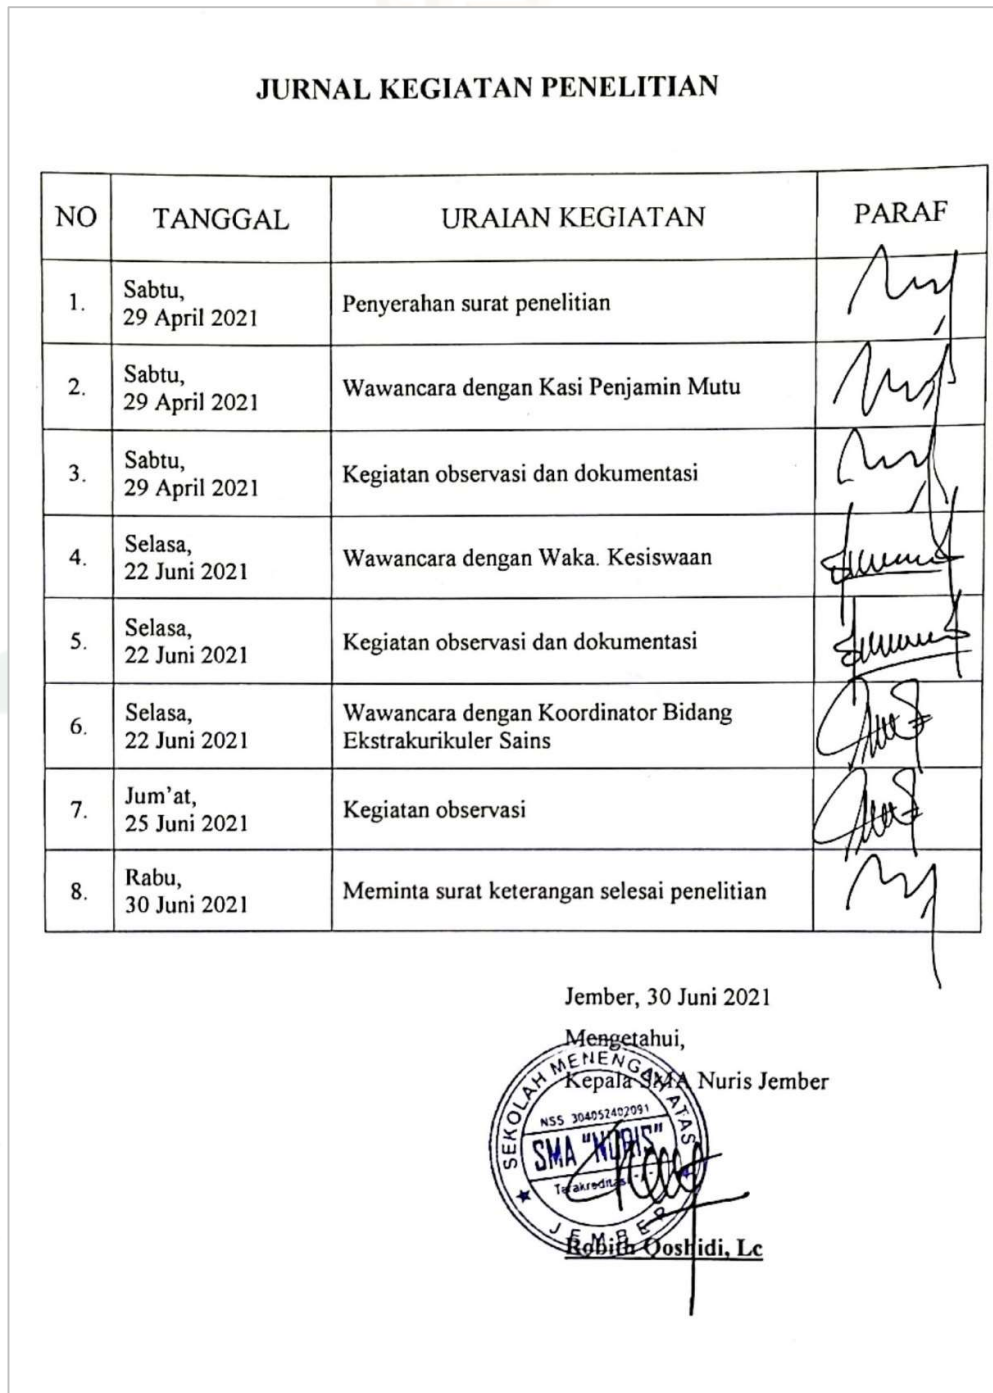 JURNAL KEGIATAN PENELITIAN
NO TANGGAL URAIAN KEGIATAN PARAF
1. Sabtu,
29 April 2021 Penyerahan surat penelitian
2. Sabtu,
29 April 2021 Wawancara dengan Kasi Penjamin Mutu
3. Sabtu,
29 April 2021 Kegiatan observasi dan dokumentasi
4. Selasa,
22 Juni 2021 Wawancara dengan Waka. Kesiswaan
5. Selasa,
22 Juni 2021 Kegiatan observasi dan dokumentasi
6. Selasa,
22 Juni 2021 Wawancara dengan Koordinator Bidang
Ekstrakurikuler Sains
7. Jum'at,
25 Juni 2021 Kegiatan observasi
8. Rabu,
30 Juni 2021 Meminta surat keterangan selesai penelitian
Jember, 30 Juni 2021
Mengetahui,
Kepala SMA Nuris Jember
SEKOLAH MENENGAH ATAS
NSS 304052402091
SMA "NURIS"
JEMBER
Robith Qoshidi, Lc